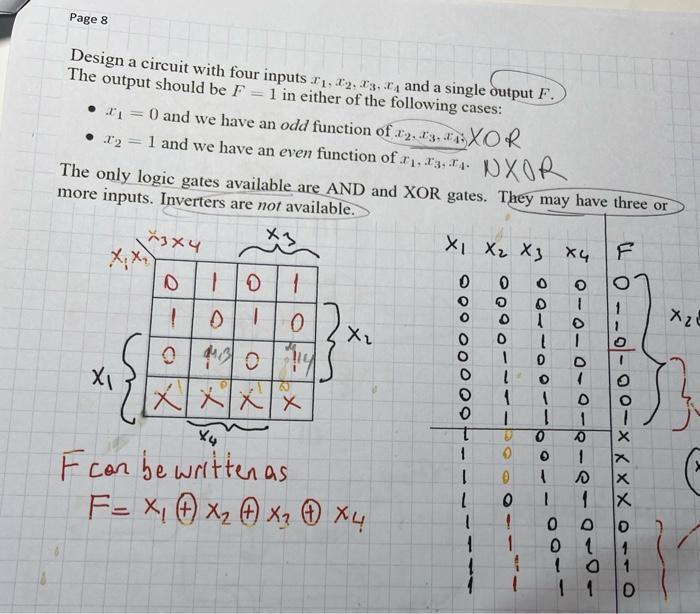 Page 8
Design a circuit with four inputs x₁, x₂, x₃, x₄ and a single output F.
The output should be F = 1 in either of the following cases:
• x₁ = 0 and we have an odd function of x₂, x₃, x₄; XOR
• x₂ = 1 and we have an even function of x₁, x₃, x₄. NXOR
The only logic gates available are AND and XOR gates. They may have three or
more inputs. Inverters are not available.
x₃x₄
x₃
x₁x₂
0 1 0 1
1 0 1 0
x₂
0 0
x₁
x x x x
x₄
F can be written as
F = x₁ ⊕ x₂ ⊕ x₃ ⊕ x₄
x₁ x₂ x₃ x₄ F
0 0 0 0 0
0 0 0 1 1
0 0 1 0 1
0 0 1 1 0
0 1 0 0 1
0 1 0 1 0
0 1 1 0 0
0 1 1 1 1
1 0 0 0 x
1 0 0 1 x
1 0 1 0 x
1 0 1 1 x
1 1 0 0 0
1 1 0 1 1
1 1 1 0 1
1 1 1 0
x₂